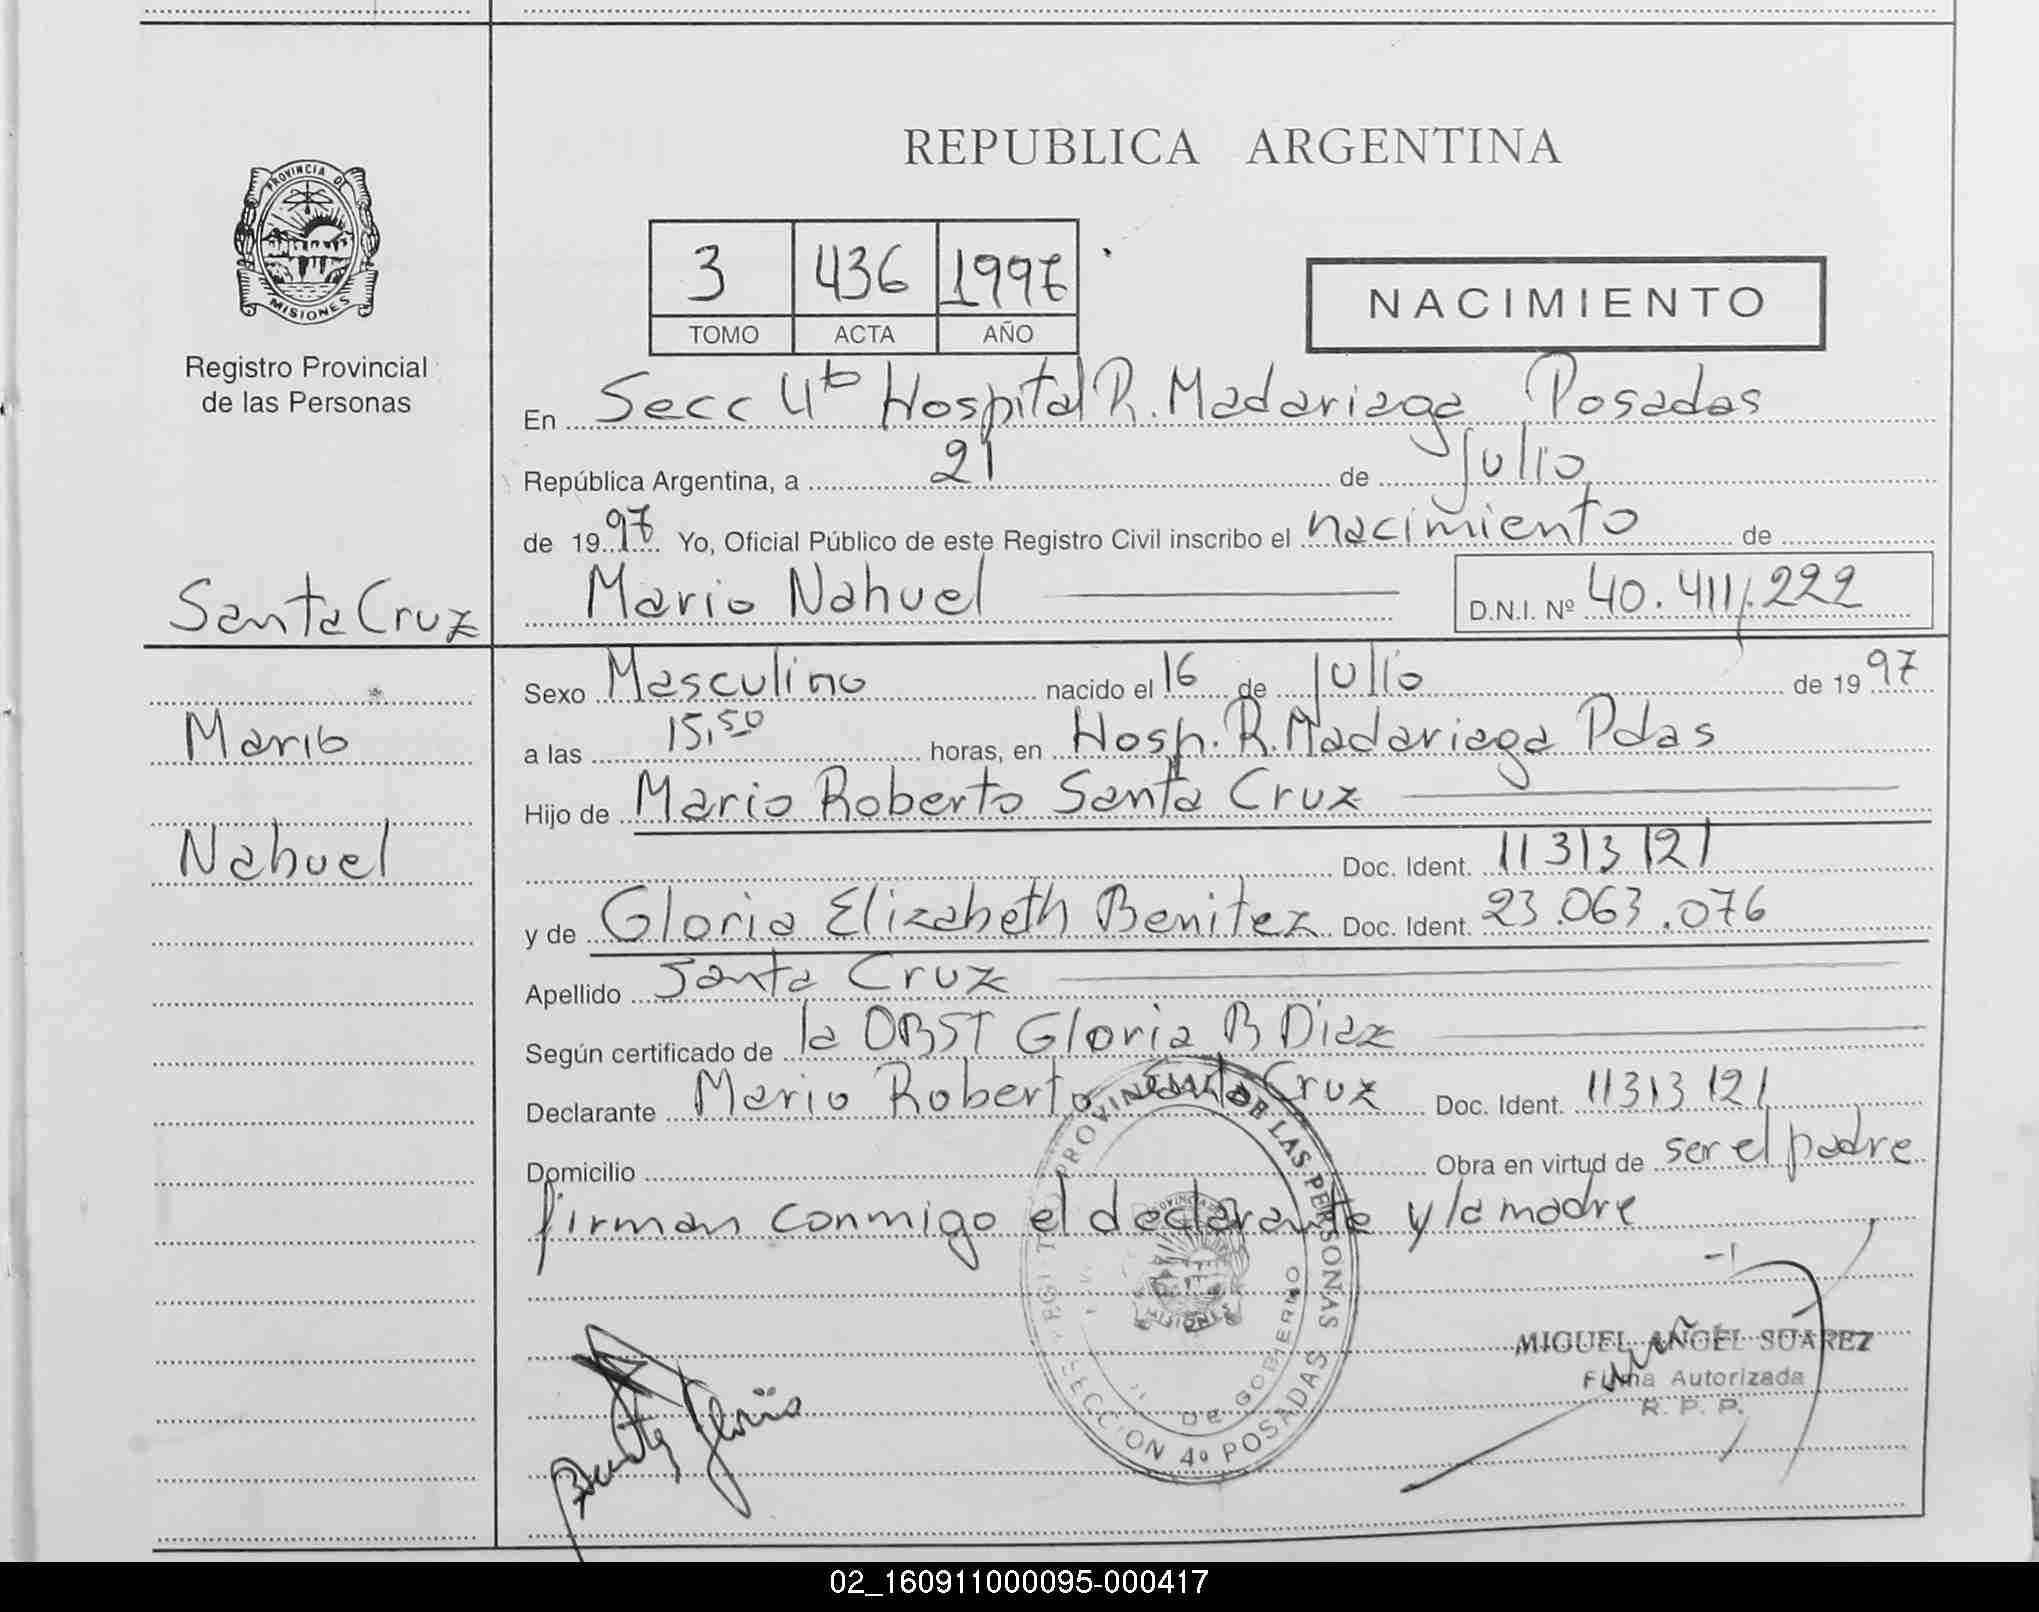 REPUBLICA ARGENTINA
PROVINCIA DE
MISIONES
Registro Provincial
de las Personas
3 436 1997
TOMO ACTA AÑO
NACIMIENTO
En Secc 4ta Hospital R. Madariaga Posadas
República Argentina, a 21 de Julio
de 1997 Yo, Oficial Público de este Registro Civil inscribo el nacimiento de
Mario Nahuel D.N.I. Nº 40.411.222
Santa Cruz
Mario
Nahuel
Sexo Masculino nacido el 16 de Julio de 1997
a las 15,50 horas, en Hosp. R. Madariaga Pdas
Hijo de Mario Roberto Santa Cruz
Doc. Ident. 11313121
y de Gloria Elizabeth Benitez Doc. Ident. 23.063.076
Apellido Santa Cruz
Según certificado de la OBST Gloria B Diaz
Declarante Mario Roberto Santa Cruz Doc. Ident. 11313121
Domicilio Obra en virtud de ser el padre
firman conmigo el declarante y la madre
PROVINCIAL DE LAS PERSONAS
SECCION 4º POSADAS
DE GOBIERNO
MISIONES
MIGUEL ANGEL SUAREZ
Firma Autorizada
R. P. P.
Benitez Gloria
02_160911000095-000417